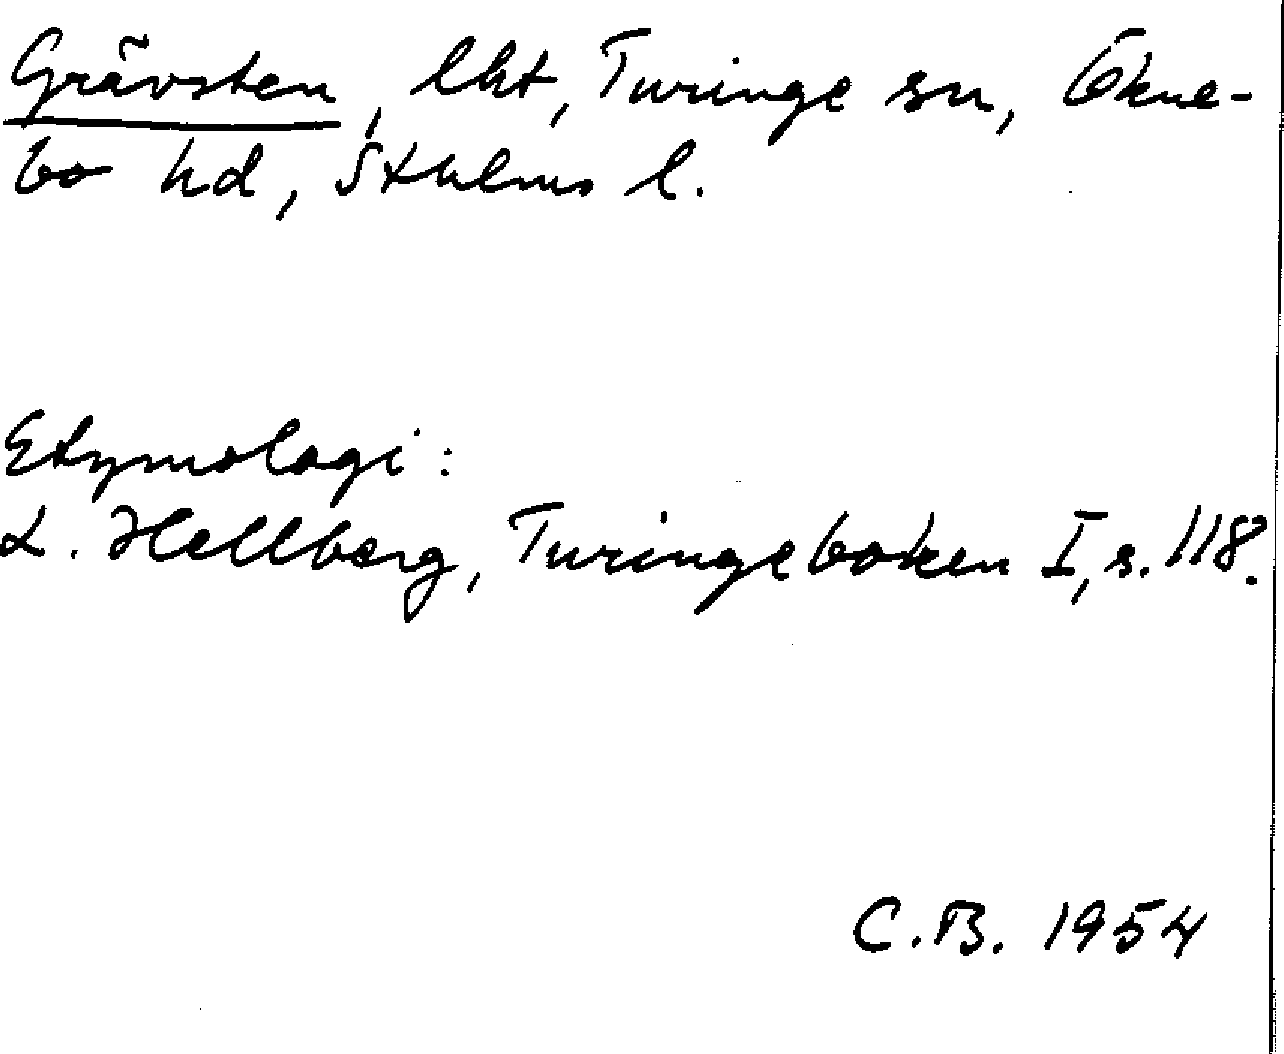 Grävsten, lht, Turinge sn, Ökne-
bo hd, Sthlms l.
Etymologi:
L. Hellberg, Turingeboken I, s. 118.
C.B. 1954